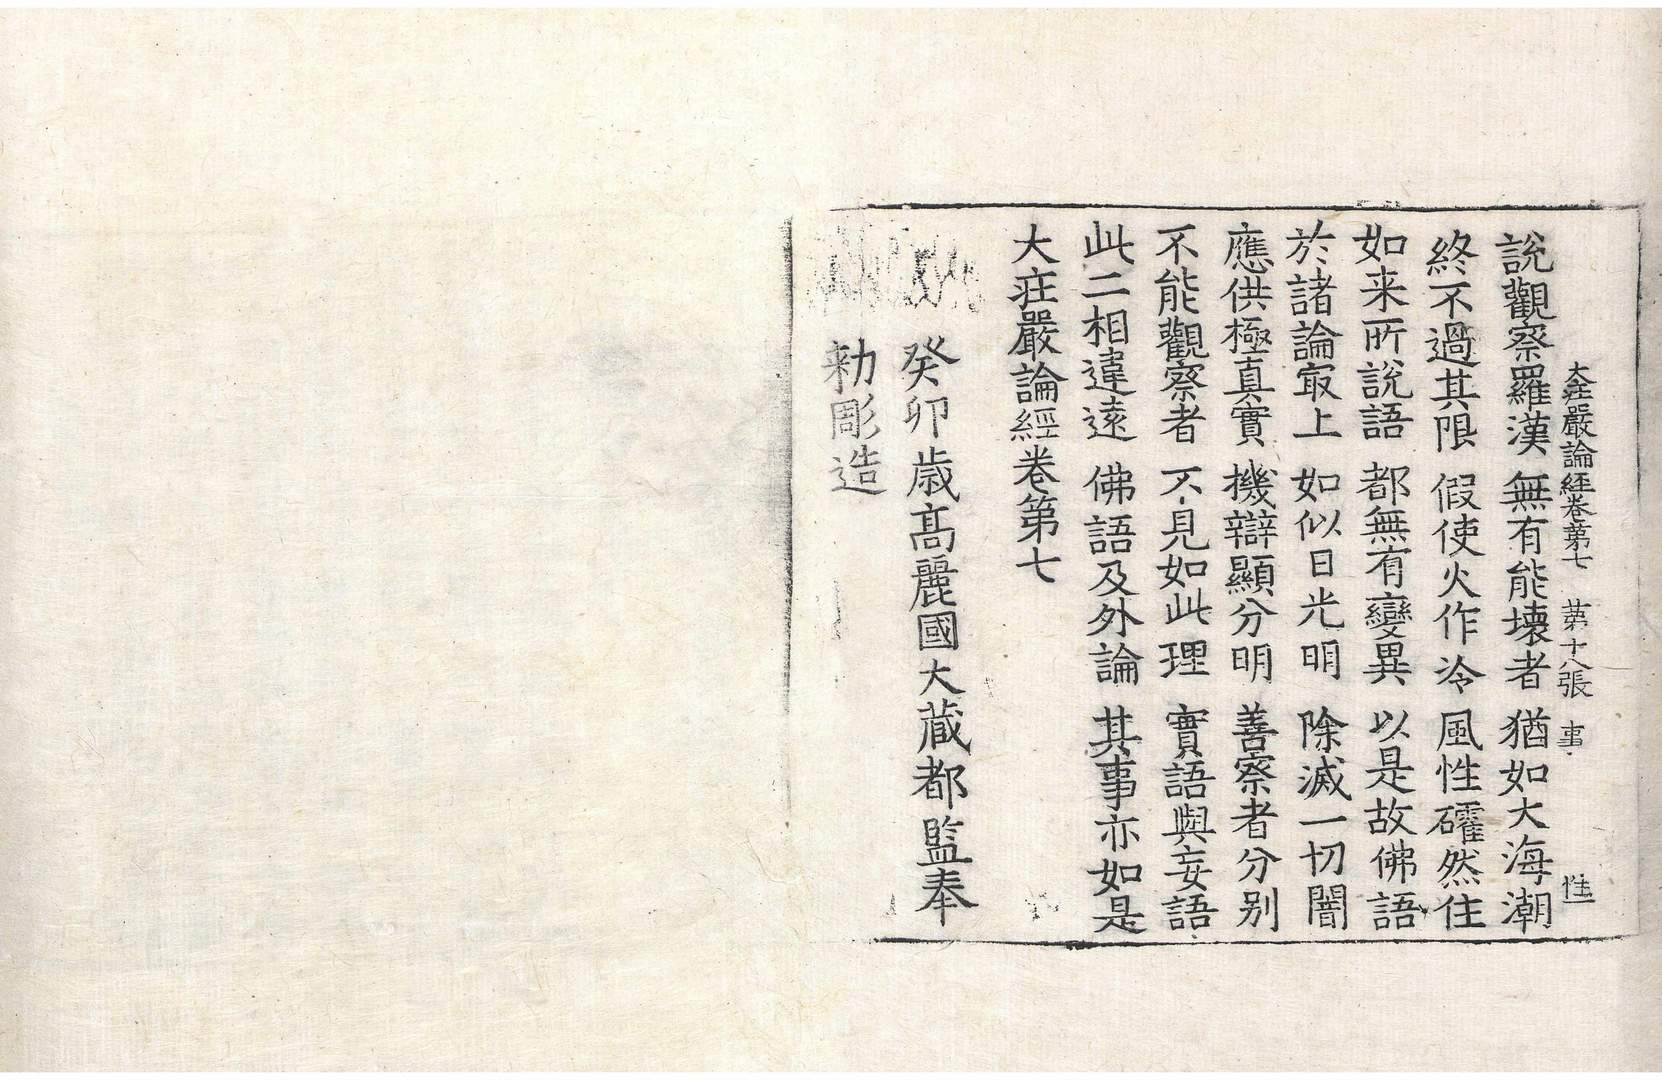 大㽵嚴論經卷苐七 苐十八張 事 性
說觀察羅漢 無有能壞者 猶如大海潮
終不過其限 假使火作冷 風性礭然住
如来所說語 都無有變異 以是故佛語
於諸論㝡上 如似日光明 除滅一切闇
應供極真實 機辯顯分明 善察者分別
不能觀察者 不見如此理 實語與妄語
此二相違遠 佛語及外論 其事亦如是
大㽵嚴論經卷第七
癸卯歳髙麗國大藏都監奉
勑彫造